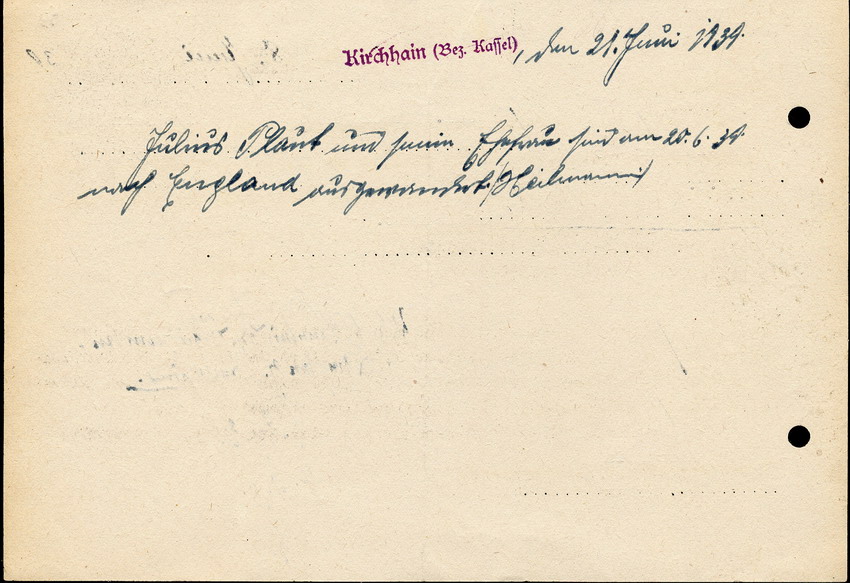 Kirchhain (Bez. Kassel), den 21. Juni 1939.
Julius Plaut und seine Ehefrau sind am 20.6.39.
nach England ausgewandert. (Heilmann)